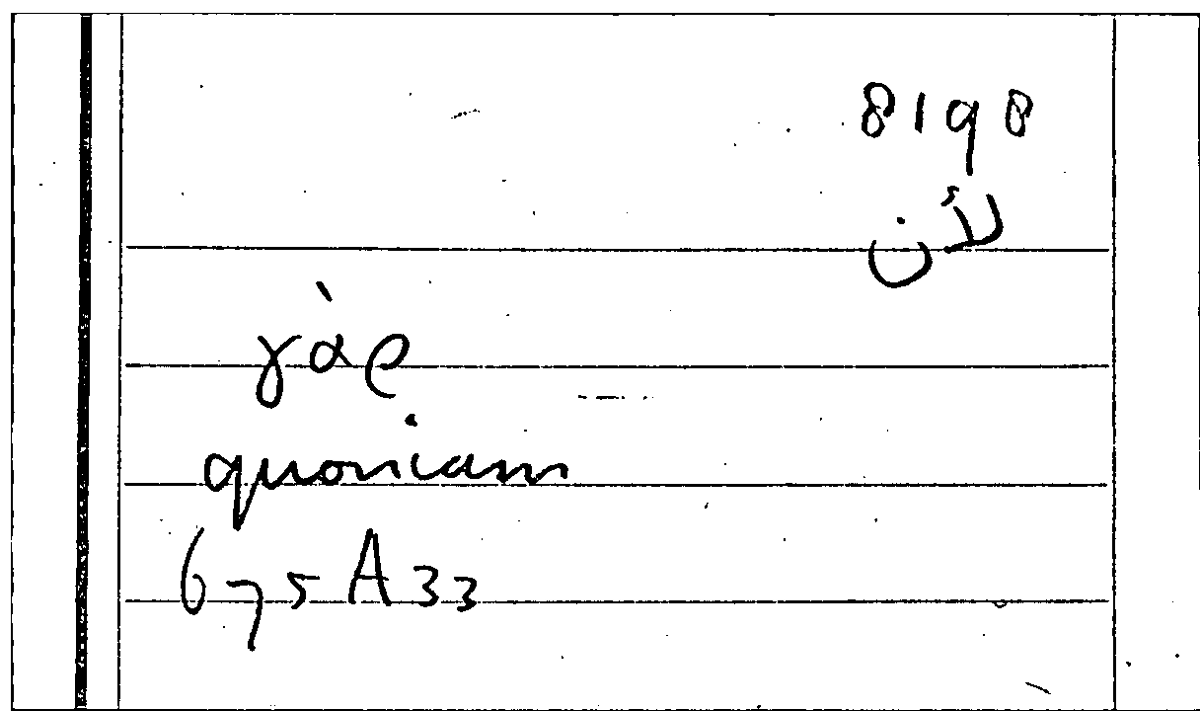 8198
لأن
γὰρ
quoniam
675A33